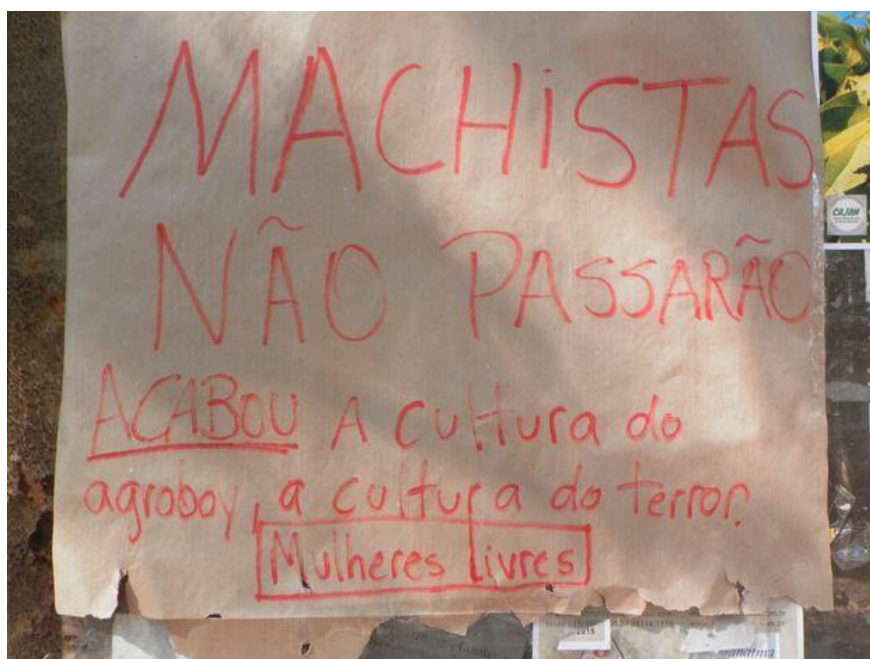 MACHISTAS
NÃO PASSARÃO
ACABOU A cultura do
agroboy, a cultura do terror.
Mulheres livres
CAJAN
2015